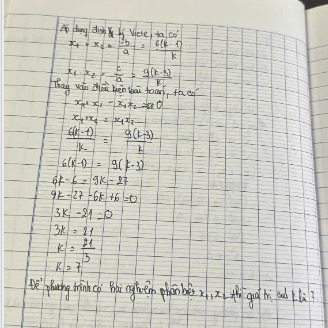 Áp dụng định lý Viete, ta có
x₁ + x₂ = -b/a = 6(k-1)/k
x₁ x₂ = c/a = 9(k-3)/k
Thay vào điều kiện bài toán, ta có
x₁ + x₂ - x₁x₂ = 0
x₁ + x₂ = x₁x₂
6(k-1)/k = 9(k-3)/k
6(k-1) = 9(k-3)
6k - 6 = 9k - 27
9k - 27 - 6k + 6 = 0
3k - 21 = 0
3k = 21
k = 21/3
k = 7
Để phương trình có hai nghiệm phân biệt x₁, x₂ thì giá trị của k là 7